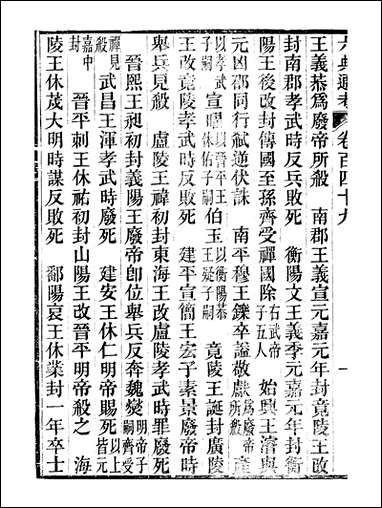 六典通考 卷百四十九 一
王義恭爲廢帝所殺 南郡王義宣元嘉元年封竟陵王改
封南郡孝武時反兵敗死 衡陽文王義季元嘉元年封衡
陽王後改封傳國至孫齊受禪國除 右武帝子五人 始興王濬與
元凶邵同行弑逆伏誅 南平穆王鑠卒謚敬獻 爲廢帝所殺 產
以孝武子嗣 宣曜 以晉平王休佑子嗣 伯玉 以衡陽恭王嶷子嗣 竟陵王誕封廣陵
王改竟陵王孝武時反敗死 建平宣簡王宏子素景廢帝時
舉兵見殺 盧陵王禕初封東海王改盧陵孝武時罪廢死
晉熙王昶初封義陽王廢帝卽位舉兵反奔魏燮 明帝子嗣齊受
禪見殺 武昌王渾孝武時廢死 建安王休仁明帝賜死 以上皆元
嘉中封 晉平刺王休祐初封山陽王改晉平明帝殺之 海
陵王休茂大明時謀反敗死 鄱陽哀王休業封一年卒士